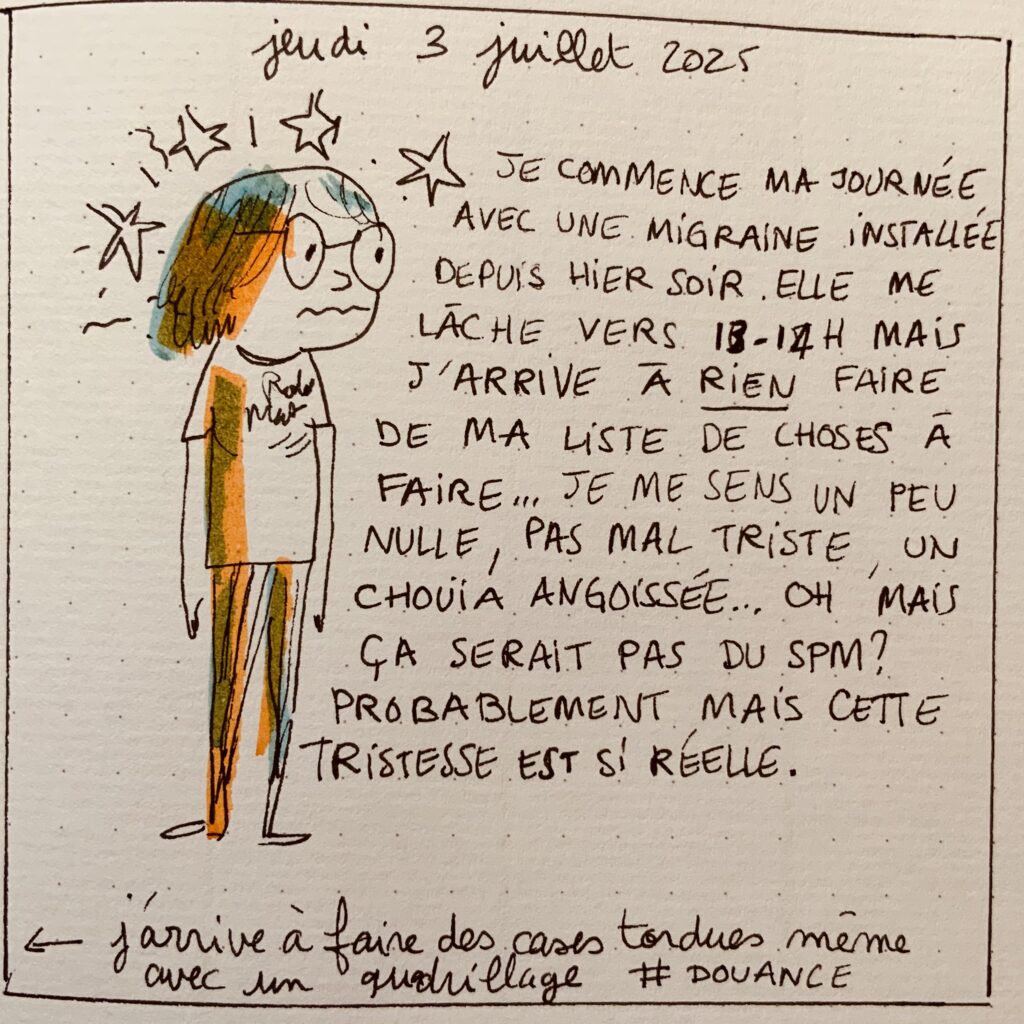 jeudi 3 juillet 2025
JE COMMENCE MA JOURNÉE
AVEC UNE MIGRAINE INSTALLÉE
DEPUIS HIER SOIR. ELLE ME
LÂCHE VERS 13-14H MAIS
J'ARRIVE À RIEN FAIRE
DE MA LISTE DE CHOSES À
FAIRE... JE ME SENS UN PEU
NULLE, PAS MAL TRISTE, UN
CHOUÏA ANGOISSÉE... OH MAIS
ÇA SERAIT PAS DU SPM?
PROBABLEMENT MAIS CETTE
TRISTESSE EST SI RÉELLE.
← j'arrive à faire des cases tordues même
avec un quadrillage # DOUANCE